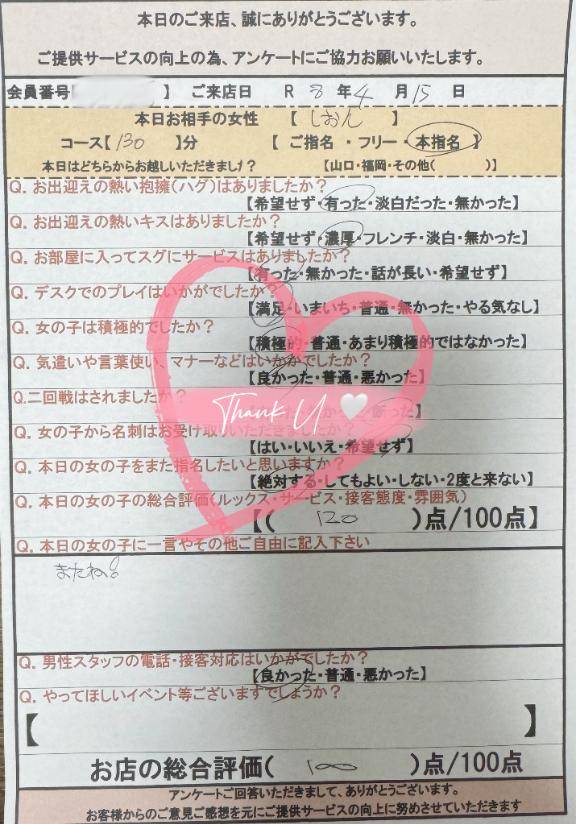 本日のご来店、誠にありがとうございます。
ご提供サービスの向上の為、アンケートにご協力お願いいたします。
会員番号 】 ご来店日 R 8 年 4 月 15 日
本日お相手の女性 【 しおん 】
コース【 130 】分 【 ご指名・フリー・本指名 】
本日はどちらからお越しいただきました? 【山口・福岡・その他( )】
Q. お出迎えの熱い抱擁(ハグ)はありましたか?
【希望せず・有った・淡白だった・無かった】
Q. お出迎えの熱いキスはありましたか?
【希望せず・濃厚・フレンチ・淡白・無かった】
Q. お部屋に入ってスグにサービスはありましたか?
【有った・無かった・話が長い・希望せず】
Q. デスクでのプレイはいかがでしたか
【満足・いまいち・普通・無かった・やる気なし】
Q. 女の子は積極的でしたか?
【積極的・普通・あまり積極的ではなかった】
Q. 気遣いや言葉使い、マナーなどはいかがでしたか?
【良かった・普通・悪かった】
Q.二回戦はされましたか?
Thank U
Q. 女の子から名刺はお受け取りいただきましたか?
【はい・いいえ・希望せず】
Q. 本日の女の子をまた指名したいと思いますか?
【絶対する・してもよい・しない・2度と来ない】
Q. 本日の女の子の総合評価(ルックス・サービス・接客態度・雰囲気)
【( 120 )点/100点】
Q. 本日の女の子に一言やその他ご自由に記入下さい
またね!
Q. 男性スタッフの電話・接客対応はいかがでしたか?
【良かった・普通・悪かった】
Q. やってほしいイベント等ございますでしょうか?
【 】
お店の総合評価( 100 )点/100点
アンケートご回答いただきまして、ありがとうございます。
お客様からのご意見ご感想を元にご提供サービスの向上に努めさせていただきます